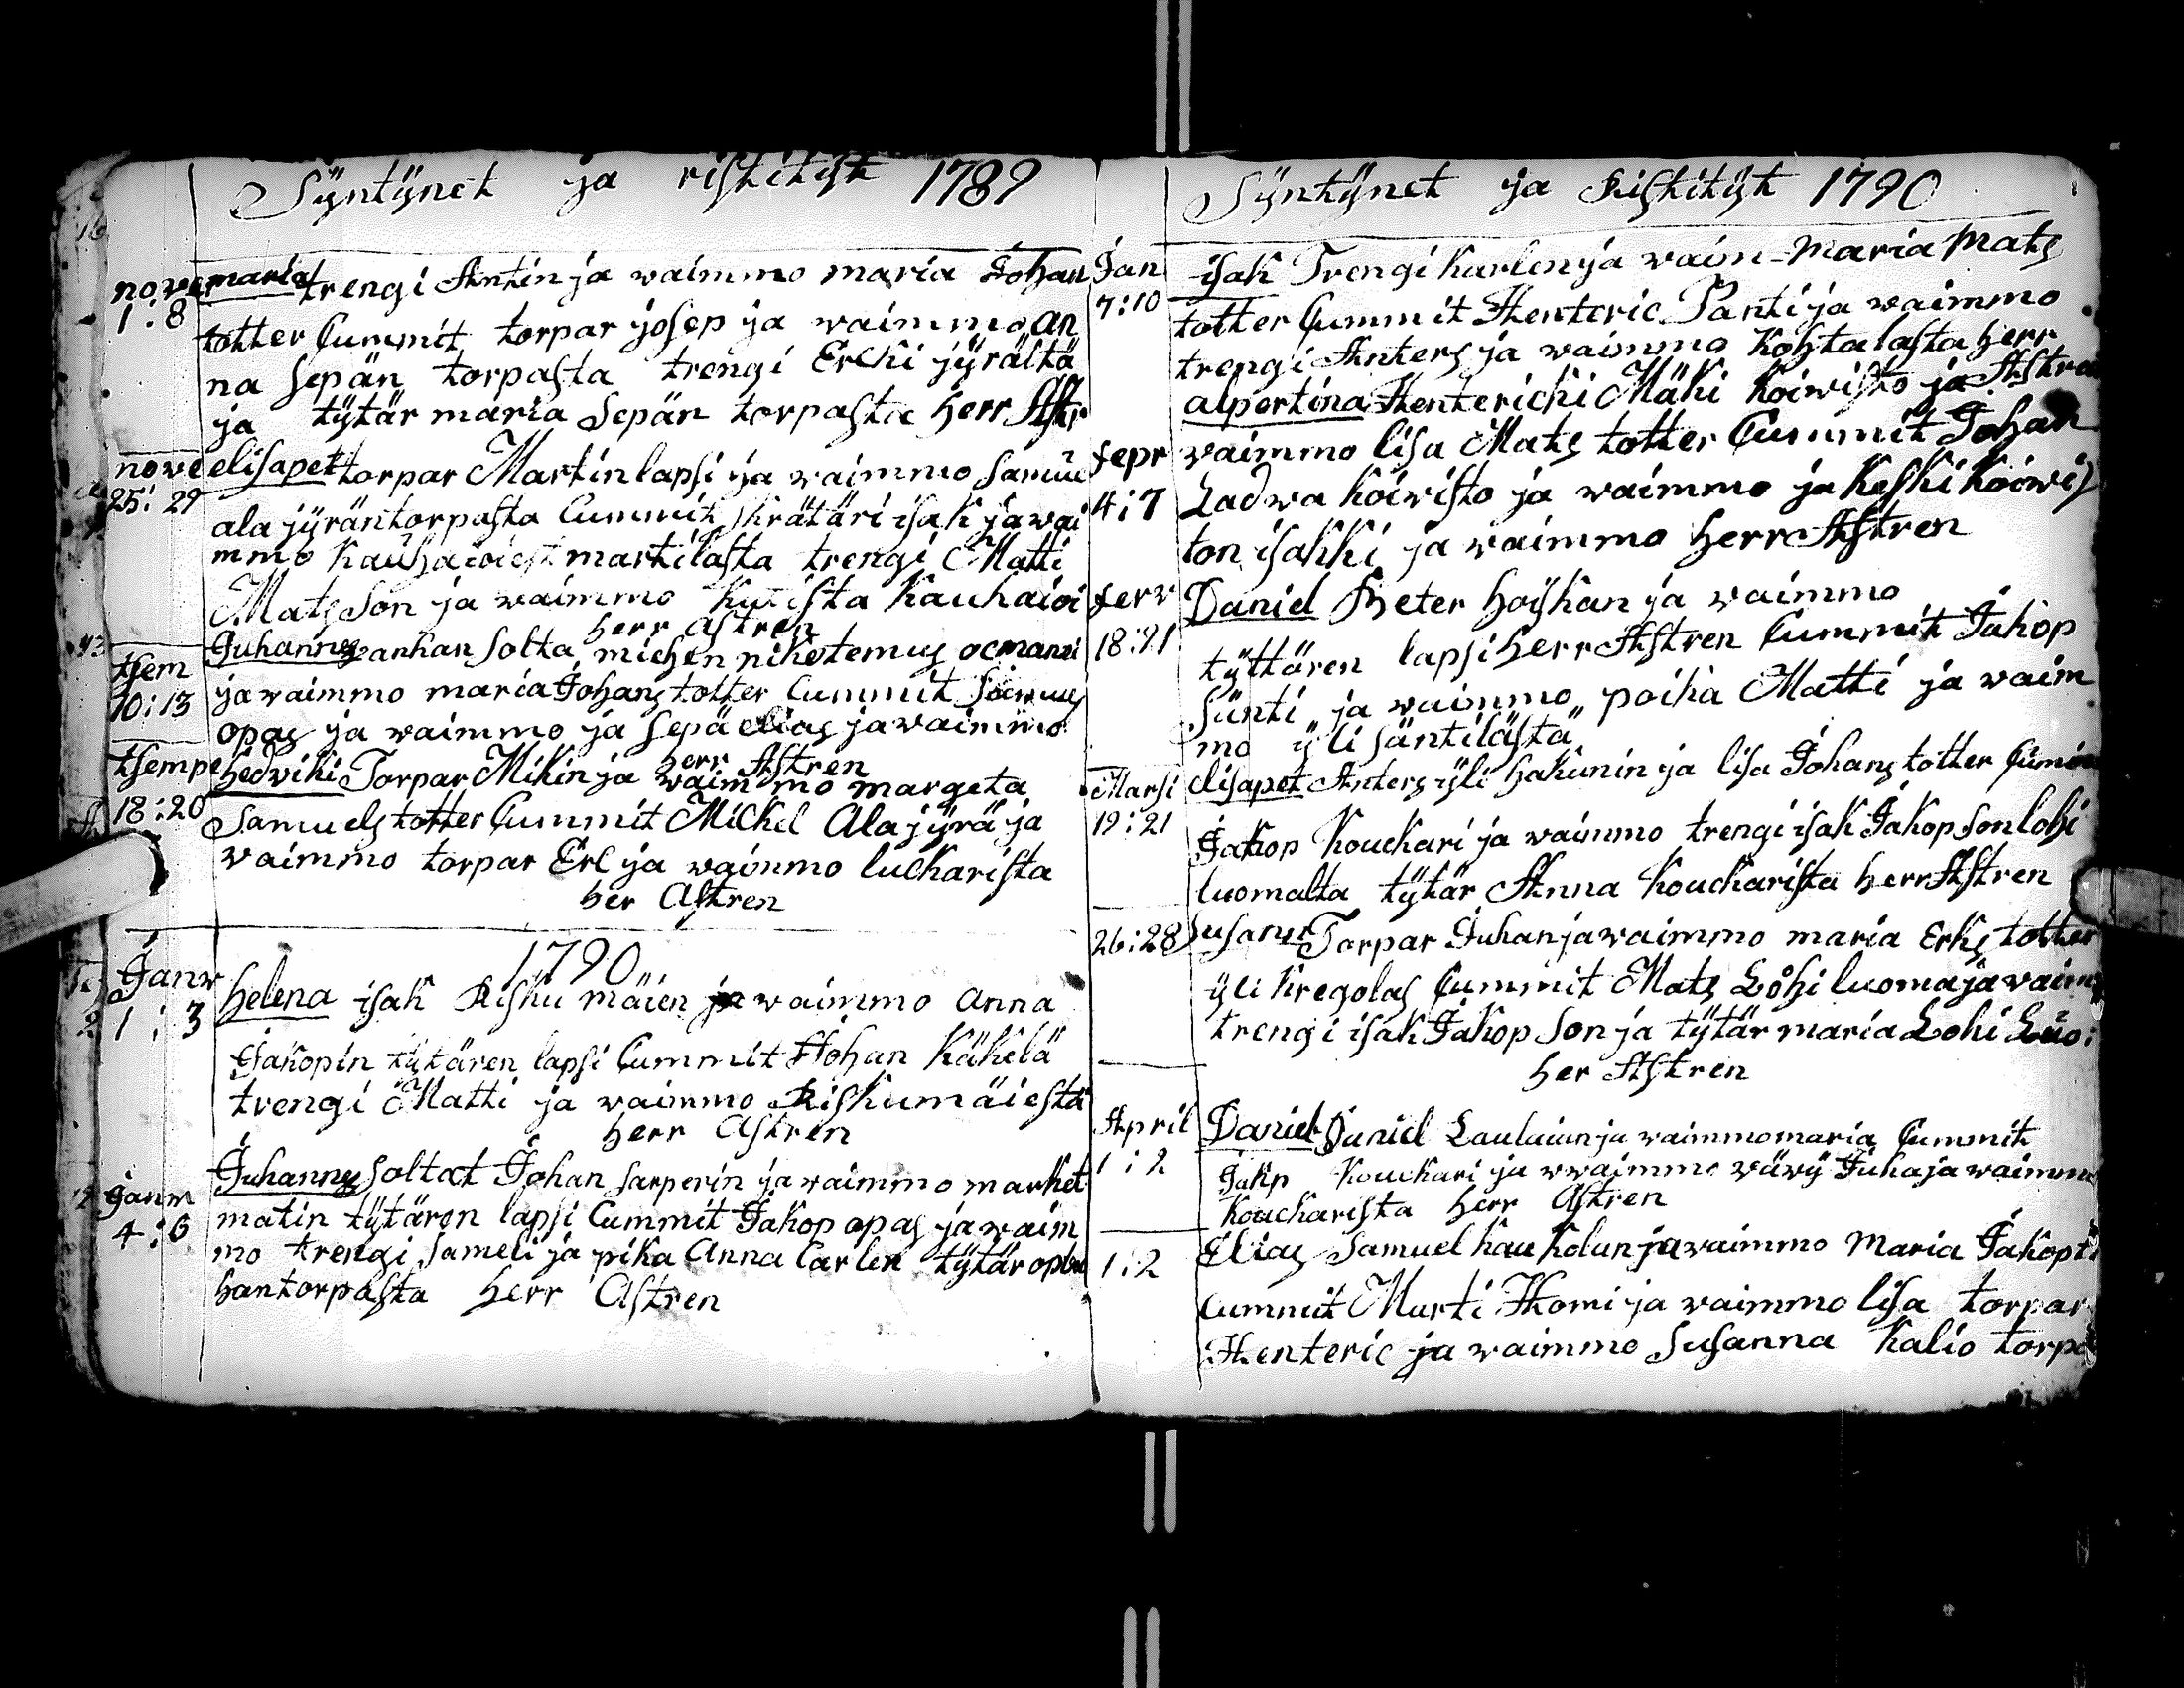 Syntynet ja ristityt 1789
nove maria trengi Antin ja waimmo maria Johan
1:8 totter Cummit torpar josep ja waimmo an
na sepän torpasta trengi Erchi jyrältä
ja tytär maria Sepän torpasta herr Astr
nove elisapet torpar Martin lapsi ja waimmo samue
25:29 ala jyräntorpasta Cummit skrätäri isak ja wai
mmo martilasta trengi Matti
Mats Son ja waimmo kauhaioi
herr astren
tsem Juhannes wanhan solta michen nikotemus
10:13 ja waimmo maria Johans totter Cummit
opas ja waimmo ja sepä elias ja waimmo
herr Astren
tsempe hedviki Torpar Mikin ja waimmo margeta
18:20 Samuels totter Cummit Mickel Alajyrä ja
waimmo torpar Erc ja waimmo lucharista
her Astren
1790
Janw helena isak Riskumäien ja waimmo anna
1:3 Jakopin tytären lapsi Cummit Johan Käkelä
trengi Matti ja waimmo Riskumäiestä
herr Astren
Janw Juhannes soltat Johan sarperin ja waimmo market
4:6 matin tytären lapsi Cummit Jakop opas ja waim
mo trengi sameli ja pika Anna Carlen tytär
hantorpasta herr Astren
Syntynet ja Ristityt 1790
Jan isak Trengi Karlen ja waim-maria Mats
7:10 totter Cummit Henteric Panti ja waimmo
trengi Anters ja waimmo kohtalasta herr
alpertina Henterichi Mäki koiwisto ja Astren
fepr waimmo lisa Mats totter Cummit Johan
4:7 Ladwa koiwisto ja waimmo ja keski koiwis
ton isakki ja waimmo herr Astren
ferw Daniel Peter hoiskan ja waimmo
18:21 tyttären lapsi herr Astren Cummit Jakop
Sänti ja waimmo poika Matti ja waim
mo yli säntilästä
Marsi elisapet Anters yli hakunin ja lisa Johans totter
19:21 Jakop Kouchari ja waimmo trengi isak Jakop son lohi
luomalta tytär Anna koucharista herr Astren
26:28 Susanet Torpar Juhan ja waimmo maria Erks totter
yli kregolas Cummit Mats Lohi luoma ja waim
trengi isak Jakop son ja tytär maria Lohi Luo:
her Astren
April Daniel Daniel ja waimmo maria Cummit
1:2 Jakp Kouchari ja wwaimmo wäwy Juha ja waimmo
Koucharista herr Astren
1:2 Elias Samuel haukolan ja waimmo Maria Jakop
Cummit Marti Homi ja waimmo lisa torpar
Henteric ja waimmo Susanna kalio torpa